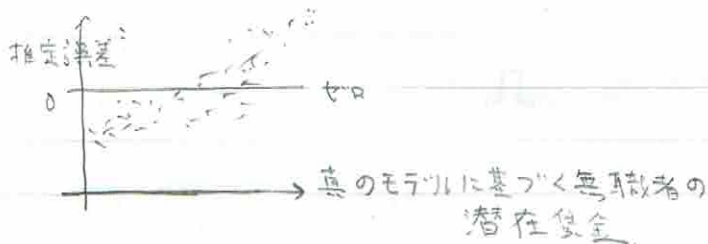 推定誤差
0
ゼロ
真のモデルに基づく無職者の
潜在賃金